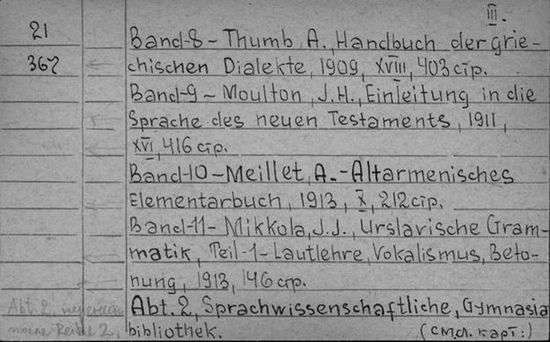 III.
21
Band-8- Thumb, A., Handbuch der grie-
367
chischen Dialekte, 1909, XVIII, 403 стр.
Band-9- Moulton, J.H., Einleitung in die
Sprache des neuen Testaments, 1911,
XVI, 416 стр.
Band-10- Meillet, A.- Altarmenisches
Elementarbuch, 1913, X, 212 стр.
Band-11- Mikkola, J.J., Urslavische Gram-
matik, Teil-1- Lautlehre, Vokalismus, Beto-
nung, 1913, 146 стр.
Abt. 2,
Abt. 2, Sprachwissenschaftliche, Gymnasia
Reihe 2,
bibliothek. (см.сл. карт:)